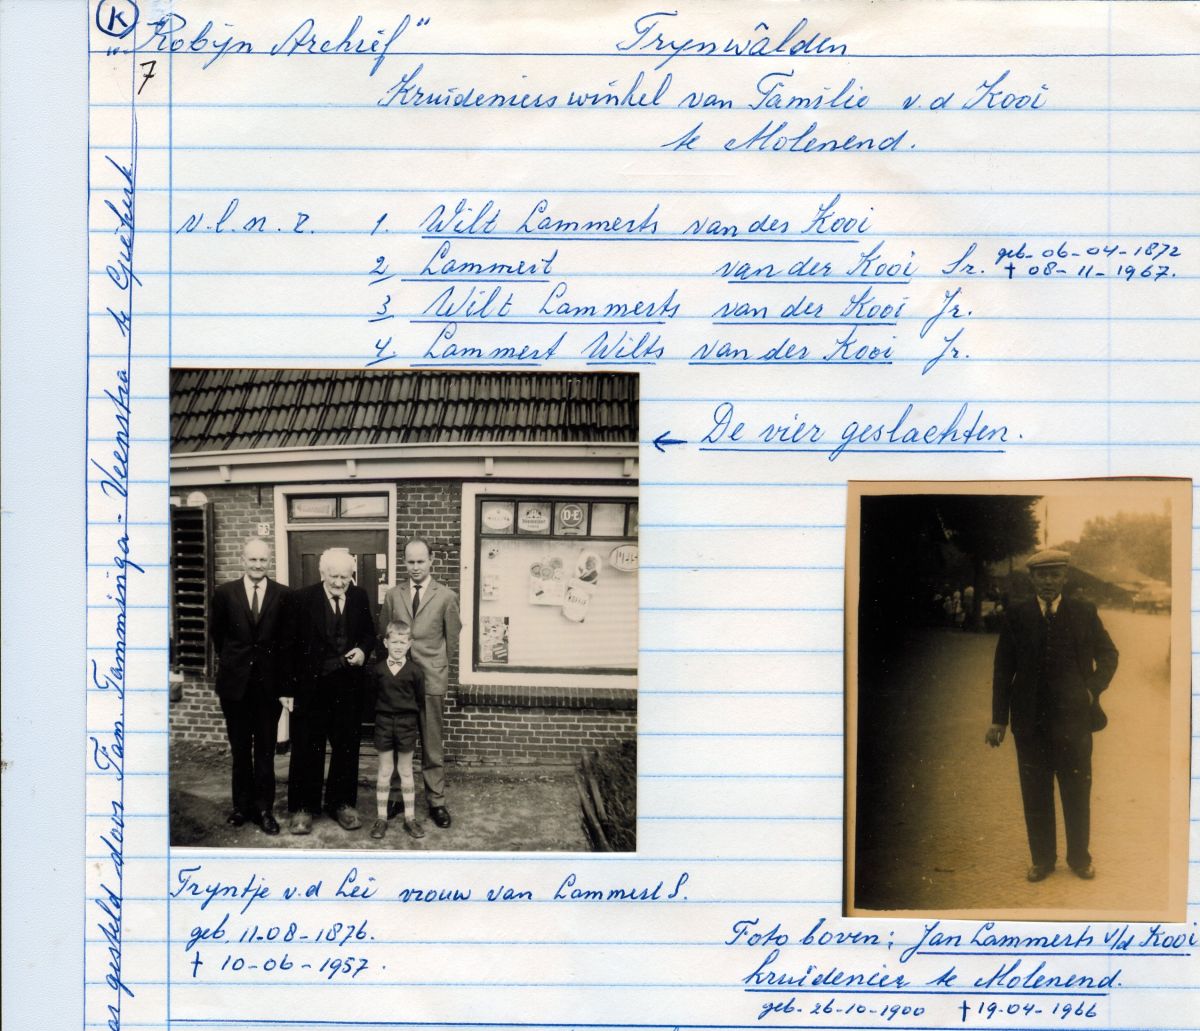 K
"Robijn Archief"
7
Trynwâlden
Kruidenierswinkel van Familie v.d Kooi
te Molenend.
v.l.n.r. 1. Wilt Lammerts van der Kooi
2 Lammert van der Kooi Sr. geb. 06-04-1872
† 08-11-1967.
3 Wilt Lammerts van der Kooi Jr.
4. Lammert Wilts van der Kooi Jr.
← De vier geslachten.
D·E
Tryntje v.d Lei vrouw van Lammert S.
geb. 11-08-1876.
† 10-06-1957.
Foto boven: Jan Lammerts v/d Kooi
kruidenier te Molenend.
geb. 26-10-1900 † 19-04-1966
gesteld door Fam. Tamminga-Veenstra te Gytsjerk